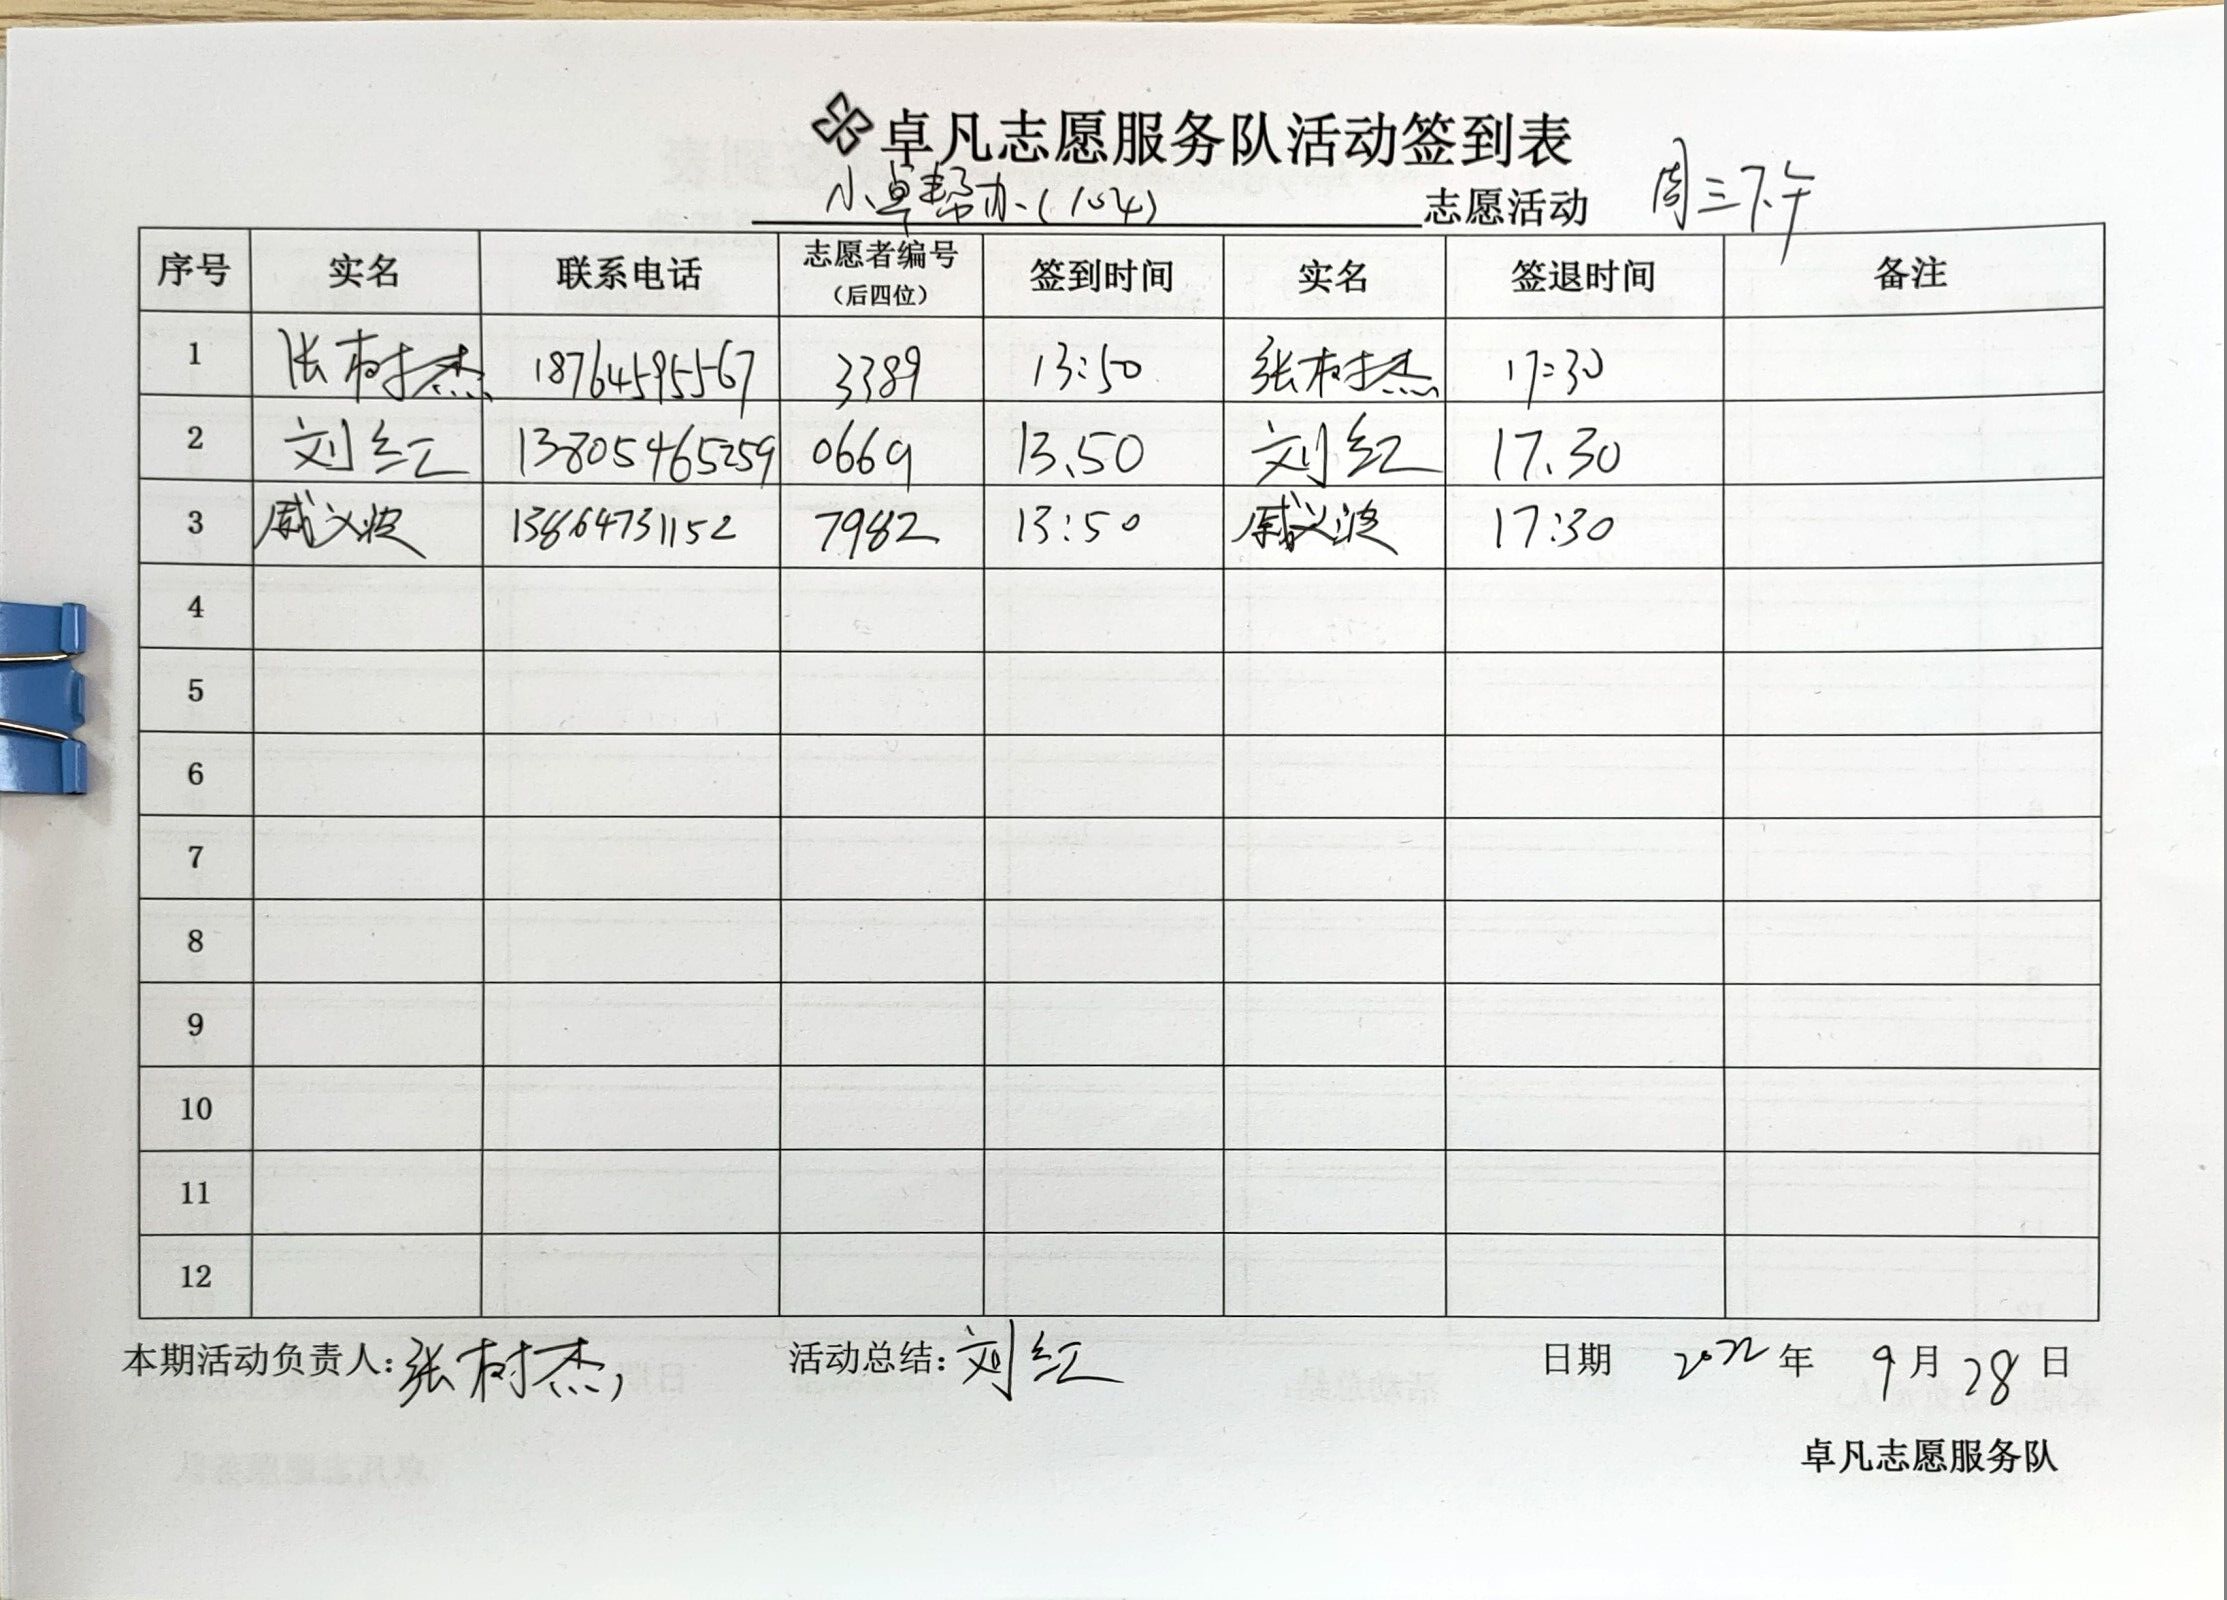 卓凡志愿服务队活动签到表
小卓帮办(104) 志愿活动 周三下午
序号 实名 联系电话 志愿者编号(后四位) 签到时间 实名 签退时间 备注
1 张树杰 18764595567 3389 13:50 张树杰 17:30
2 刘红 13805465259 0669 13.50 刘红 17.30
3 戚义波 13864731152 7982 13:50 戚义波 17:30
4
5
6
7
8
9
10
11
12
本期活动负责人:张树杰 活动总结:刘红 日期 2022年 9月28日
卓凡志愿服务队